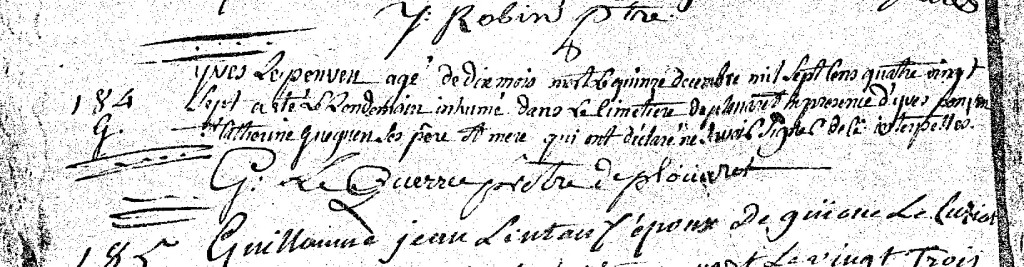 y: Robin ptre
yves Le penven agé de dix mois mort Le quinze decembre mil sept cens quatre vingt
184 sept a eté Le Lendemain inhumé dans Le Cimetiere de plouaret en presence d'yves penven
G. et Catherine gueguen ses père et mere qui ont déclaré ne savoir signer de ce interpellés.
G: Le Guerre prêtre de plouaret
185 Guillaume jean Lintan L'époux de guione Le
Le vingt Trois